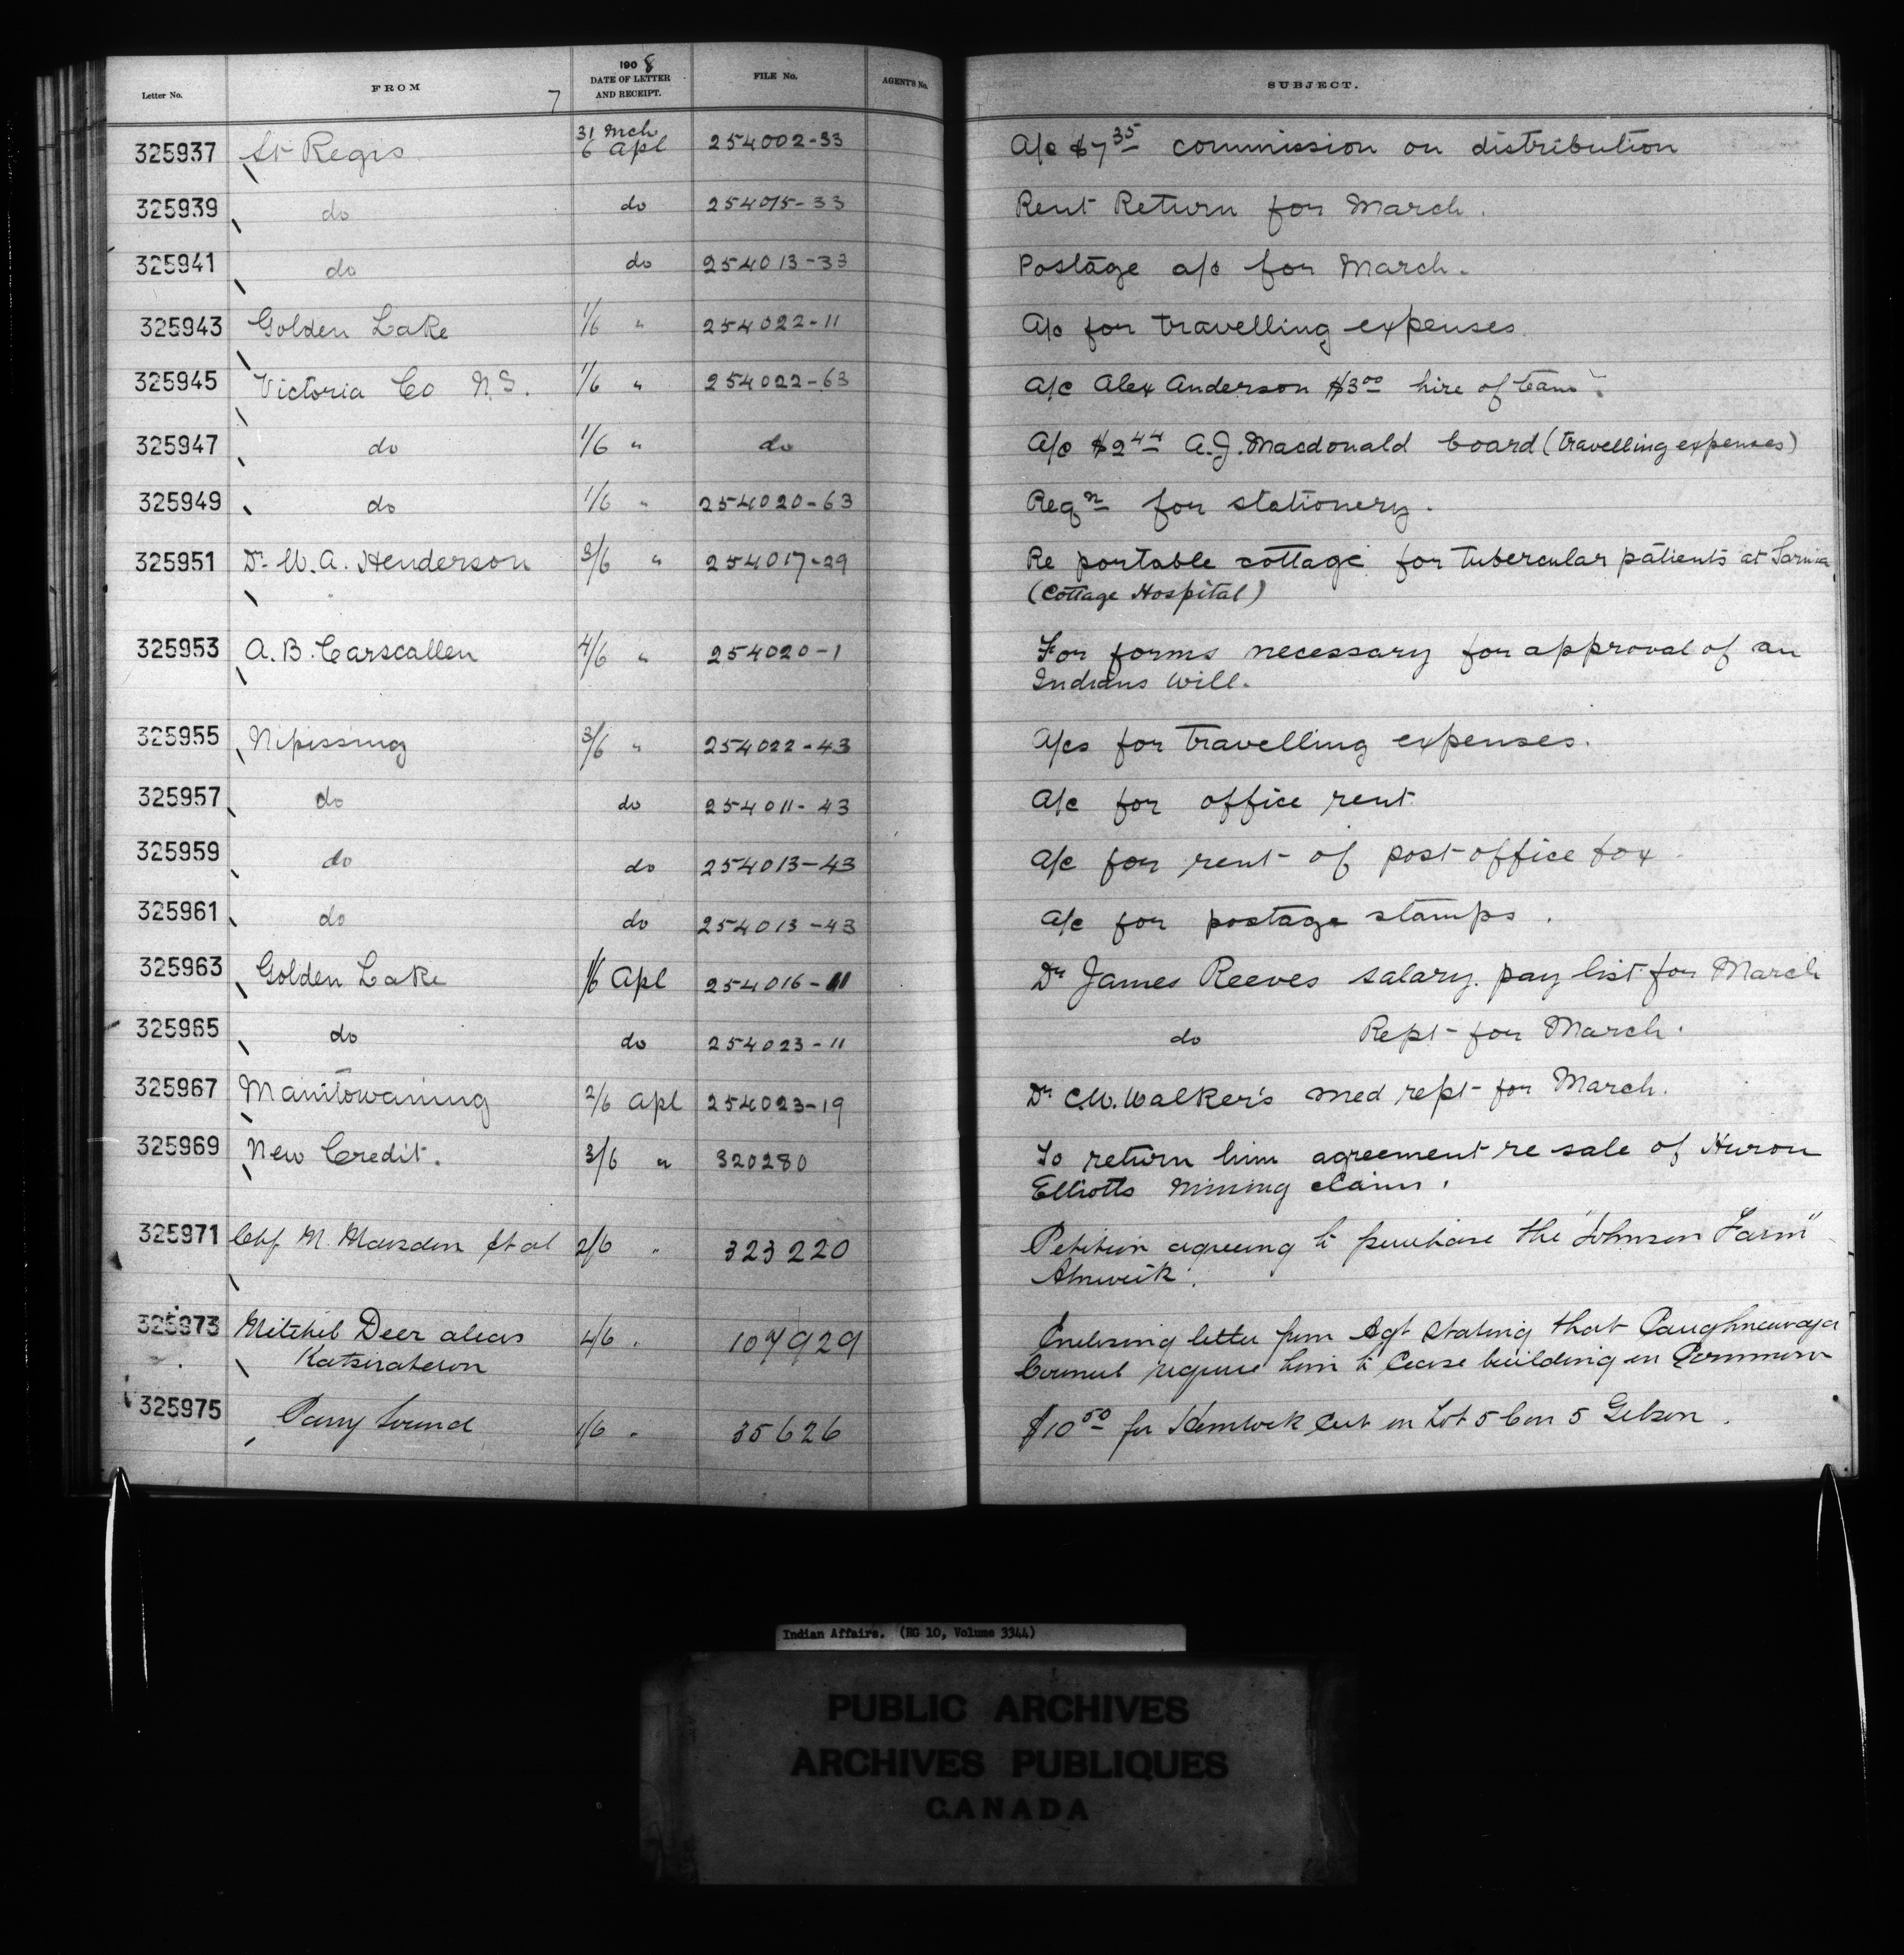 Letter No. FROM 7 1908 DATE OF LETTER AND RECEIPT. FILE No. AGENT'S No. SUBJECT.
325937 St Regis 31 Mch 6 Apl 254002-33 A/c $7 35 commission on distribution
325939 do do 254015-33 Rent Return for March.
325941 do do 254013-33 Postage a/c for March.
325943 Golden Lake 1/6 " 254022-11 A/c for travelling expenses
325945 Victoria Co N.S. 1/6 " 254022-63 A/c Alex Anderson $3 00 hire of team.
325947 do 1/6 " do A/c $2 44 A.J. Macdonald board (travelling expenses)
325949 do 1/6 " 254020-63 Reqn for stationery.
325951 Dr. W. A. Henderson 3/6 " 254017-29 Re portable cottage for tubercular patients at Sarnia
(Cottage Hospital)
325953 A. B. Carscallen 4/6 " 254020-1 For forms necessary for approval of an
Indians will.
325955 Nipissing 3/6 " 254022-43 A/cs for travelling expenses.
325957 do do 254011-43 A/c for office rent
325959 do do 254013-43 A/c for rent of post office box
325961 do do 254013-43 A/c for postage stamps.
325963 Golden Lake 1/6 Apl 254016-11 Dr James Reeves salary pay list for March
325965 do do 254023-11 do Rept for March.
325967 Manitowaning 2/6 Apl 254023-19 Dr C.W. Walker's med rept for March.
325969 New Credit. 3/6 " 320280 To return him agreement re sale of Huron
Elliotts Mining claim.
325971 Chf M. Marsden et al 2/6 " 323220 Petition agreeing to purchase the "Johnson Farm"
Alnwick.
325973 Mitchel Deer alias 4/6 " 107929 Enclosing letter from Agt stating that Caughnawaga
Katsirateron Council require him to cease building on Common
325975 Parry Sound 1/6 " 35626 $10 50 for Hemlock cut on Lot 5 Con 5 Gibson.
Indian Affairs. (RG 10, Volume 3344)
PUBLIC ARCHIVES
ARCHIVES PUBLIQUES
CANADA